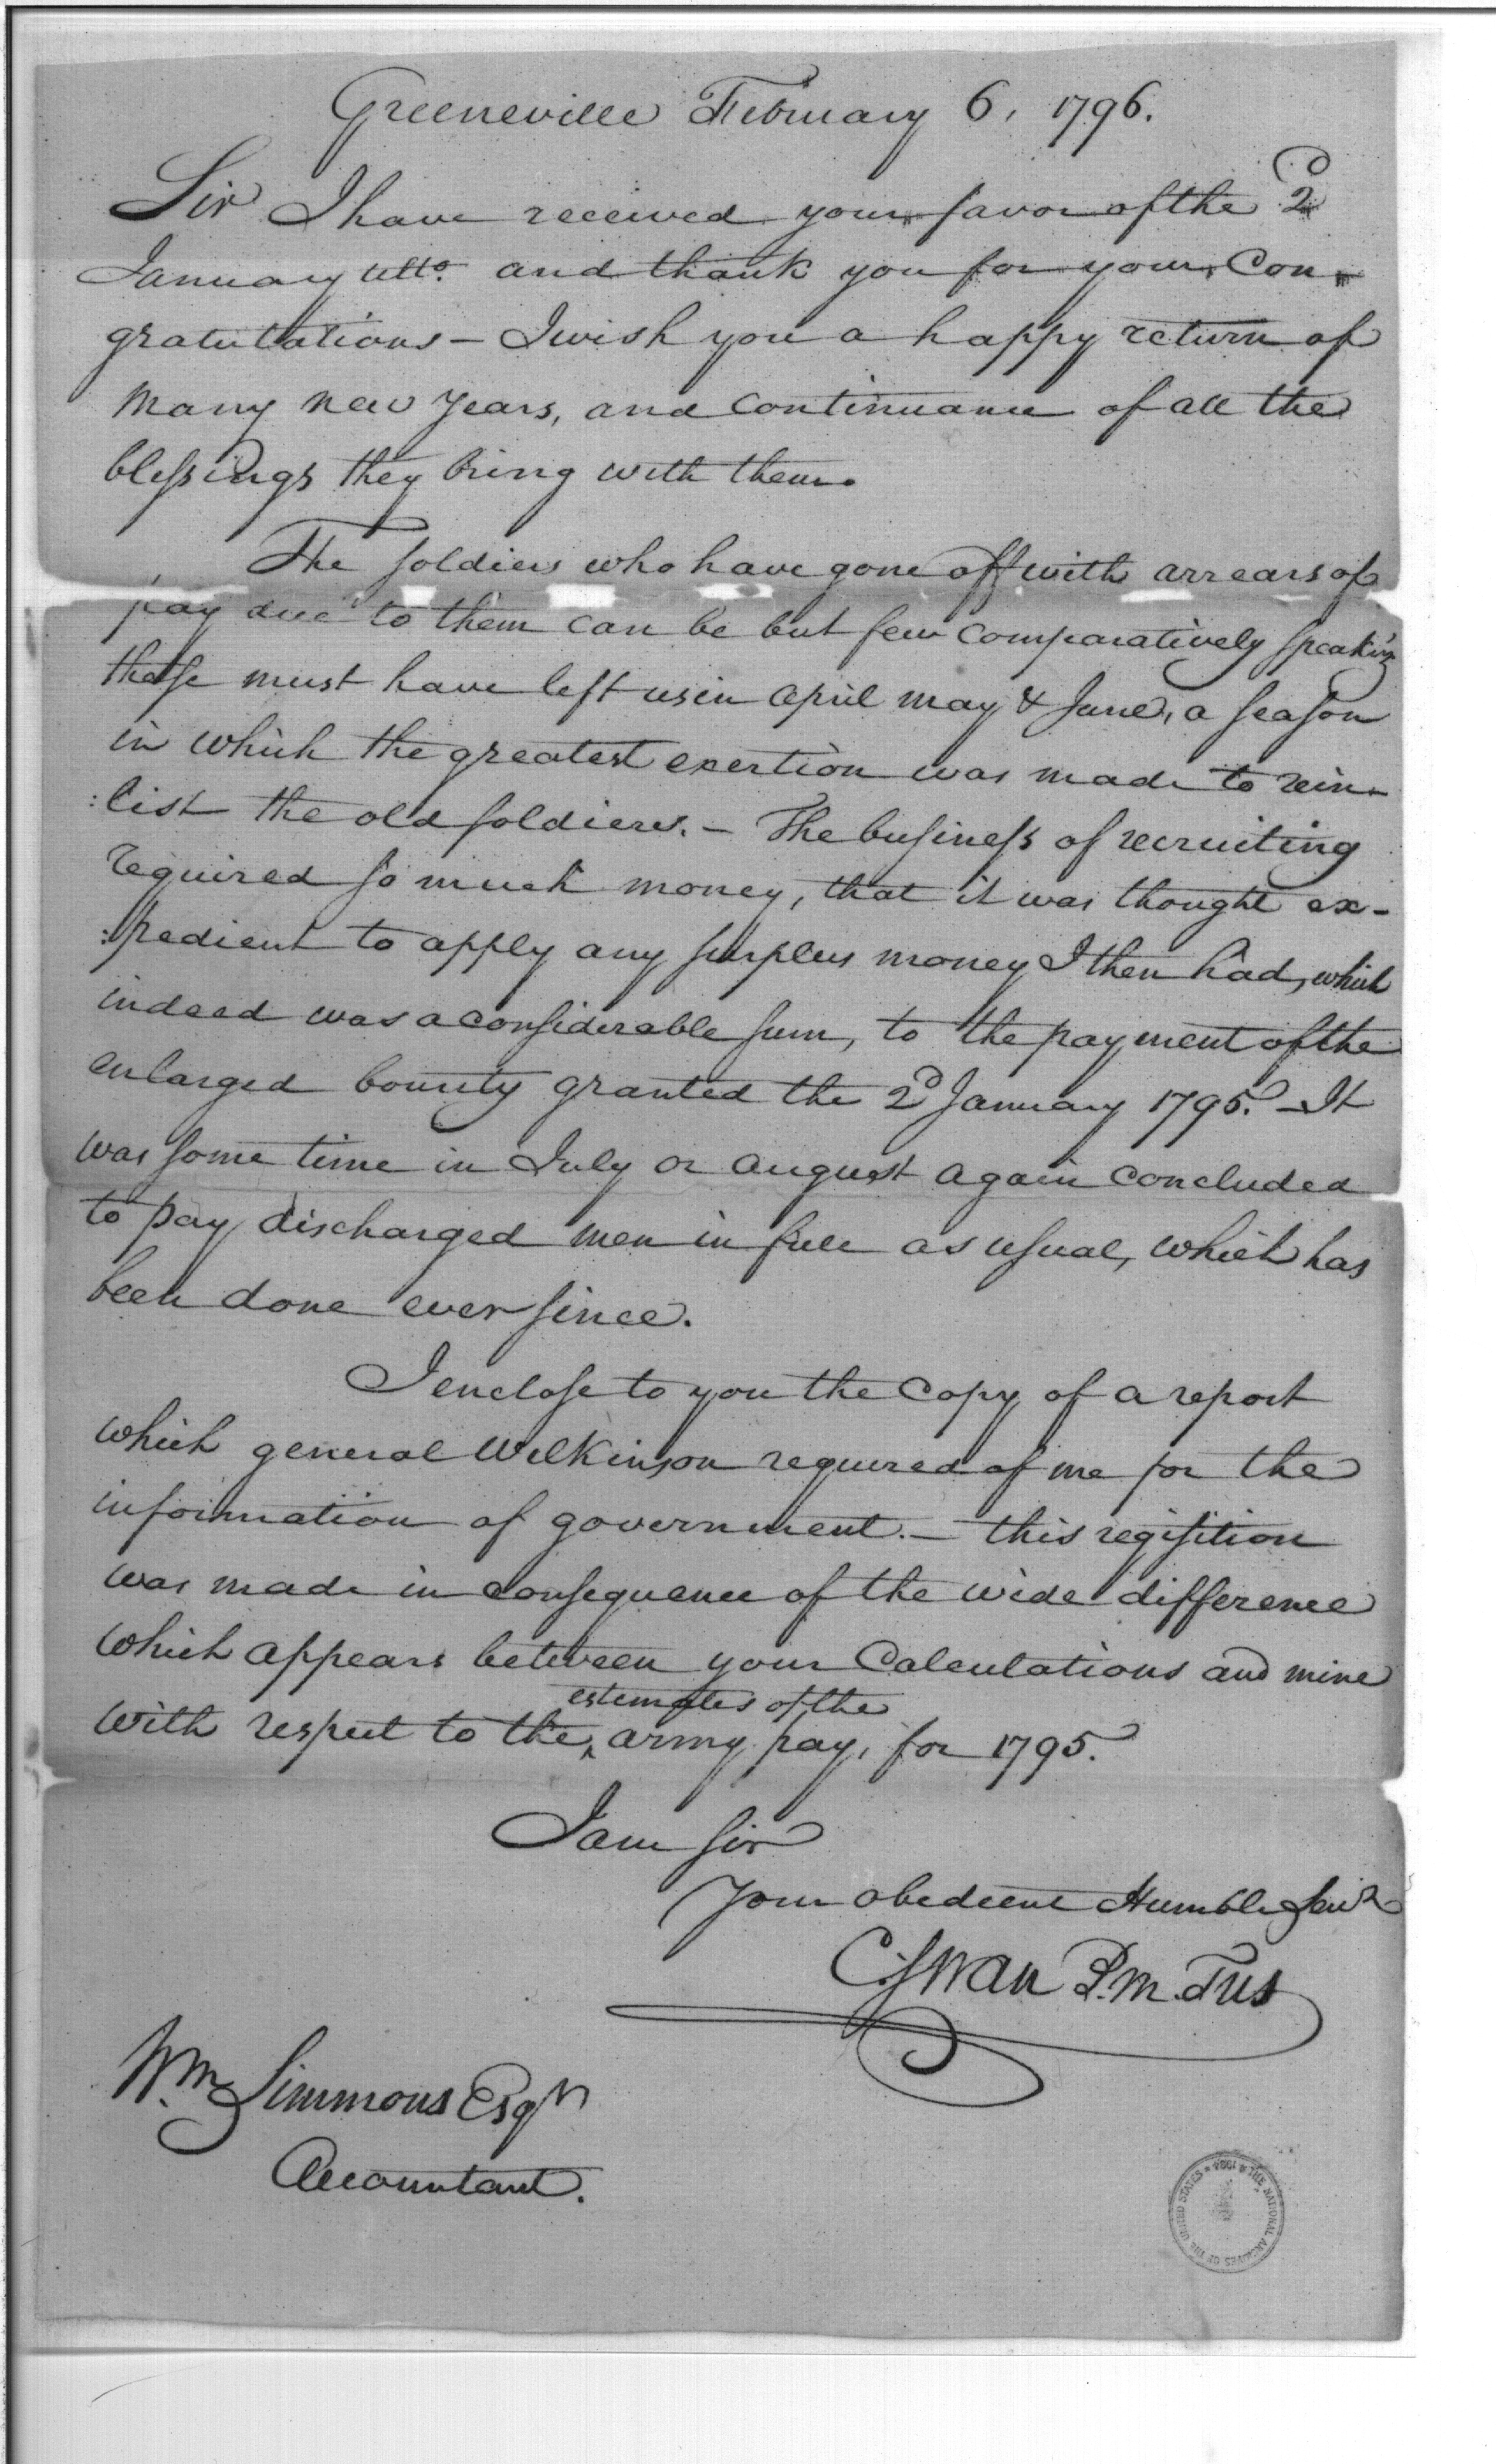 Greeneville February 6, 1796.
Sir I have received your favor of the 2d
January ulto. and thank you for your Con-
gratulations – I wish you a happy return of
many new years, and continuance of all the
blessings they bring with them.
The soldiers who have gone off with arrears of
pay due to them can be but few comparatively speaking
those must have left us in april may & June, a season
in which the greatest exertion was made to rein-
:list the old soldiers. – The business of recruiting
required so much money, that it was thought ex-
:pedient to apply any surplus money I then had, which
indeed was a considerable sum, to the payment of the
enlarged bounty granted the 2d January 1795. – It
was some time in July or august again concluded
to pay discharged men in full as usual, which has
been done ever since.
I enclose to you the copy of a report
which general Wilkinson required of me for the
information of government. – this reqisition
was made in consequence of the wide difference
which appears between your Calculations and mine
with respect to the ^ estimates of the army pay, for 1795.
I am sir
Your obedient Humble Servt
C. Swan P.M. Tus
Wm Simmons Esqr
Accountant.
THE NATIONAL ARCHIVES OF THE UNITED STATES 1934